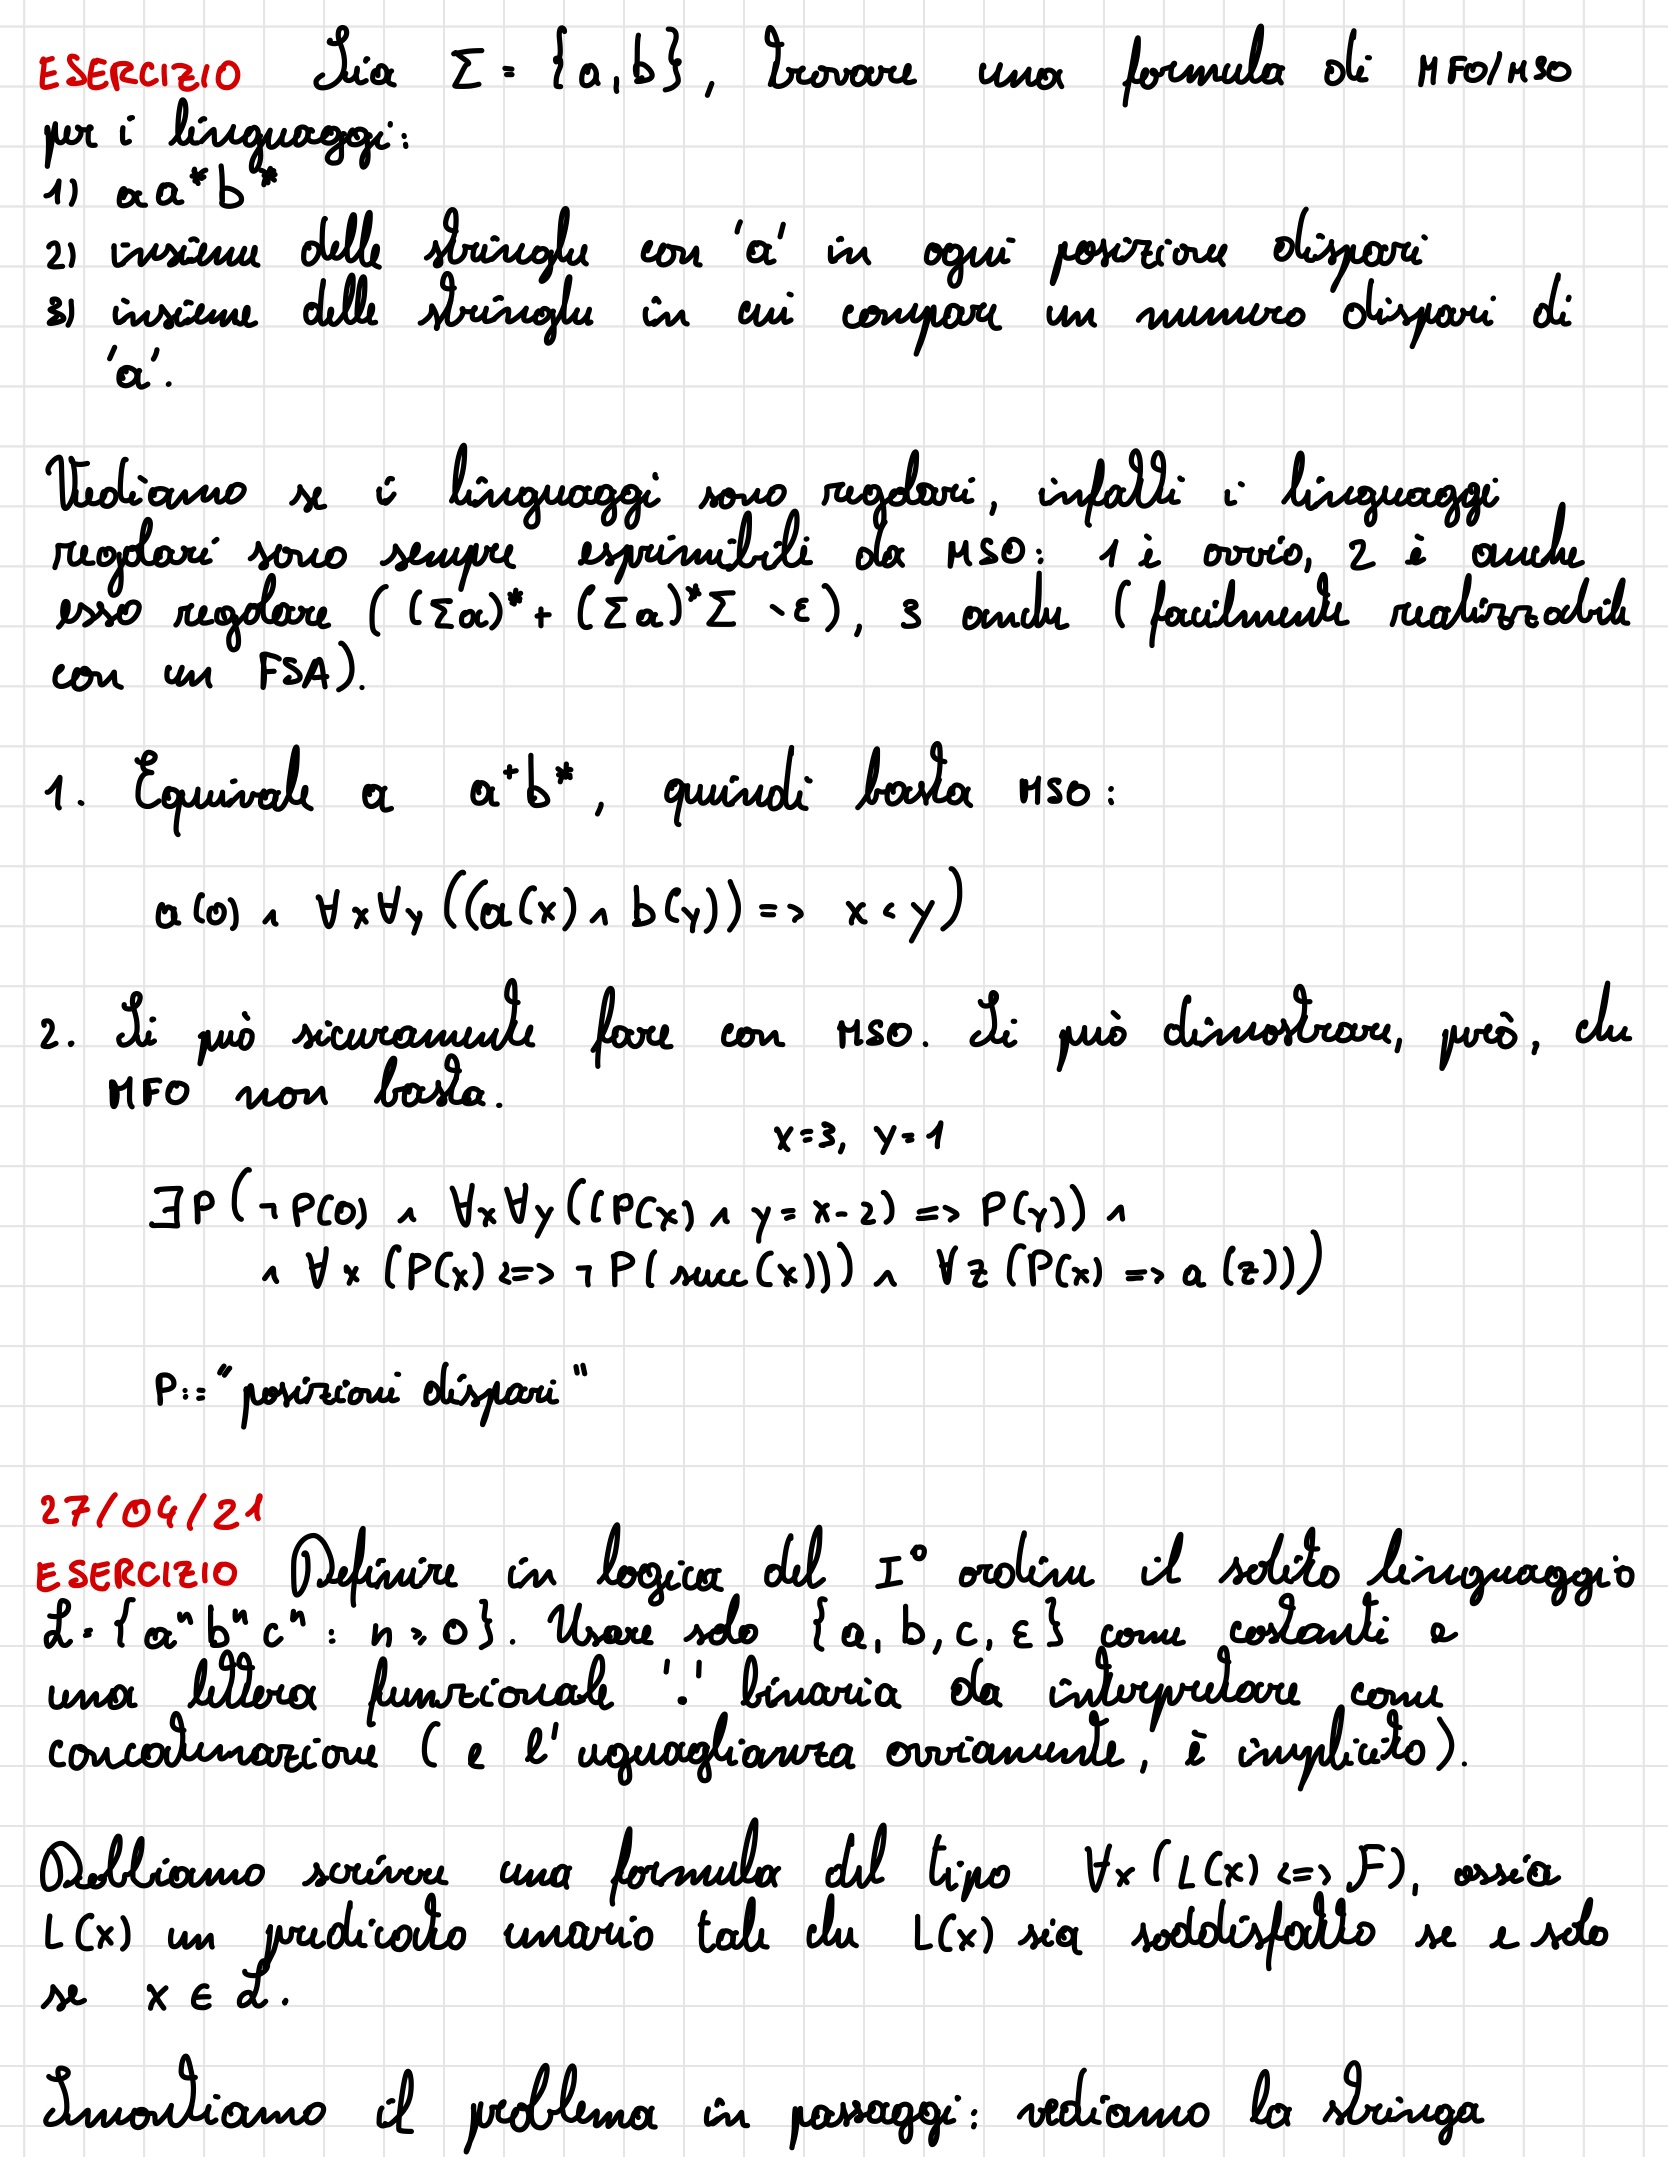 ESERCIZIO Sia Σ = {a,b}, trovare una formula di MFO/MSO
per i linguaggi:
1) aa*b*
2) insieme delle stringhe con 'a' in ogni posizione dispari
3) insieme delle stringhe in cui compare un numero dispari di
'a'.
Vediamo se i linguaggi sono regolari, infatti i linguaggi
regolari sono sempre esprimibili da MSO: 1 è ovvio, 2 è anche
esso regolare ((Σa)* + (Σa)*Σ \ ε), 3 anche (facilmente realizzabile
con un FSA).
1. Equivale a a⁺b*, quindi basta MSO:
a(0) ∧ ∀x∀y((a(x) ∧ b(y)) => x < y)
2. Si può sicuramente fare con MSO. Si può dimostrare, però, che
MFO non basta.
x=3, y=1
∃P(¬P(0) ∧ ∀x∀y((P(x) ∧ y = x-2) => P(y)) ∧
∧ ∀x (P(x) <=> ¬P(succ(x))) ∧ ∀z (P(x) => a(z)))
P:= "posizioni dispari"
27/04/21
ESERCIZIO Definire in logica del I° ordine il solito linguaggio
L = {aⁿbⁿcⁿ : n > 0}. Usare solo {a, b, c, ε} come costanti e
una lettera funzionale '.' binaria da interpretare come
concatenazione (e l'uguaglianza ovviamente, è implicito).
Dobbiamo scrivere una formula del tipo ∀x (L(x) <=> F), ossia
L(x) un predicato unario tale che L(x) sia soddisfatto se e solo
se x ∈ L.
Smontiamo il problema in passaggi: vediamo la stringa